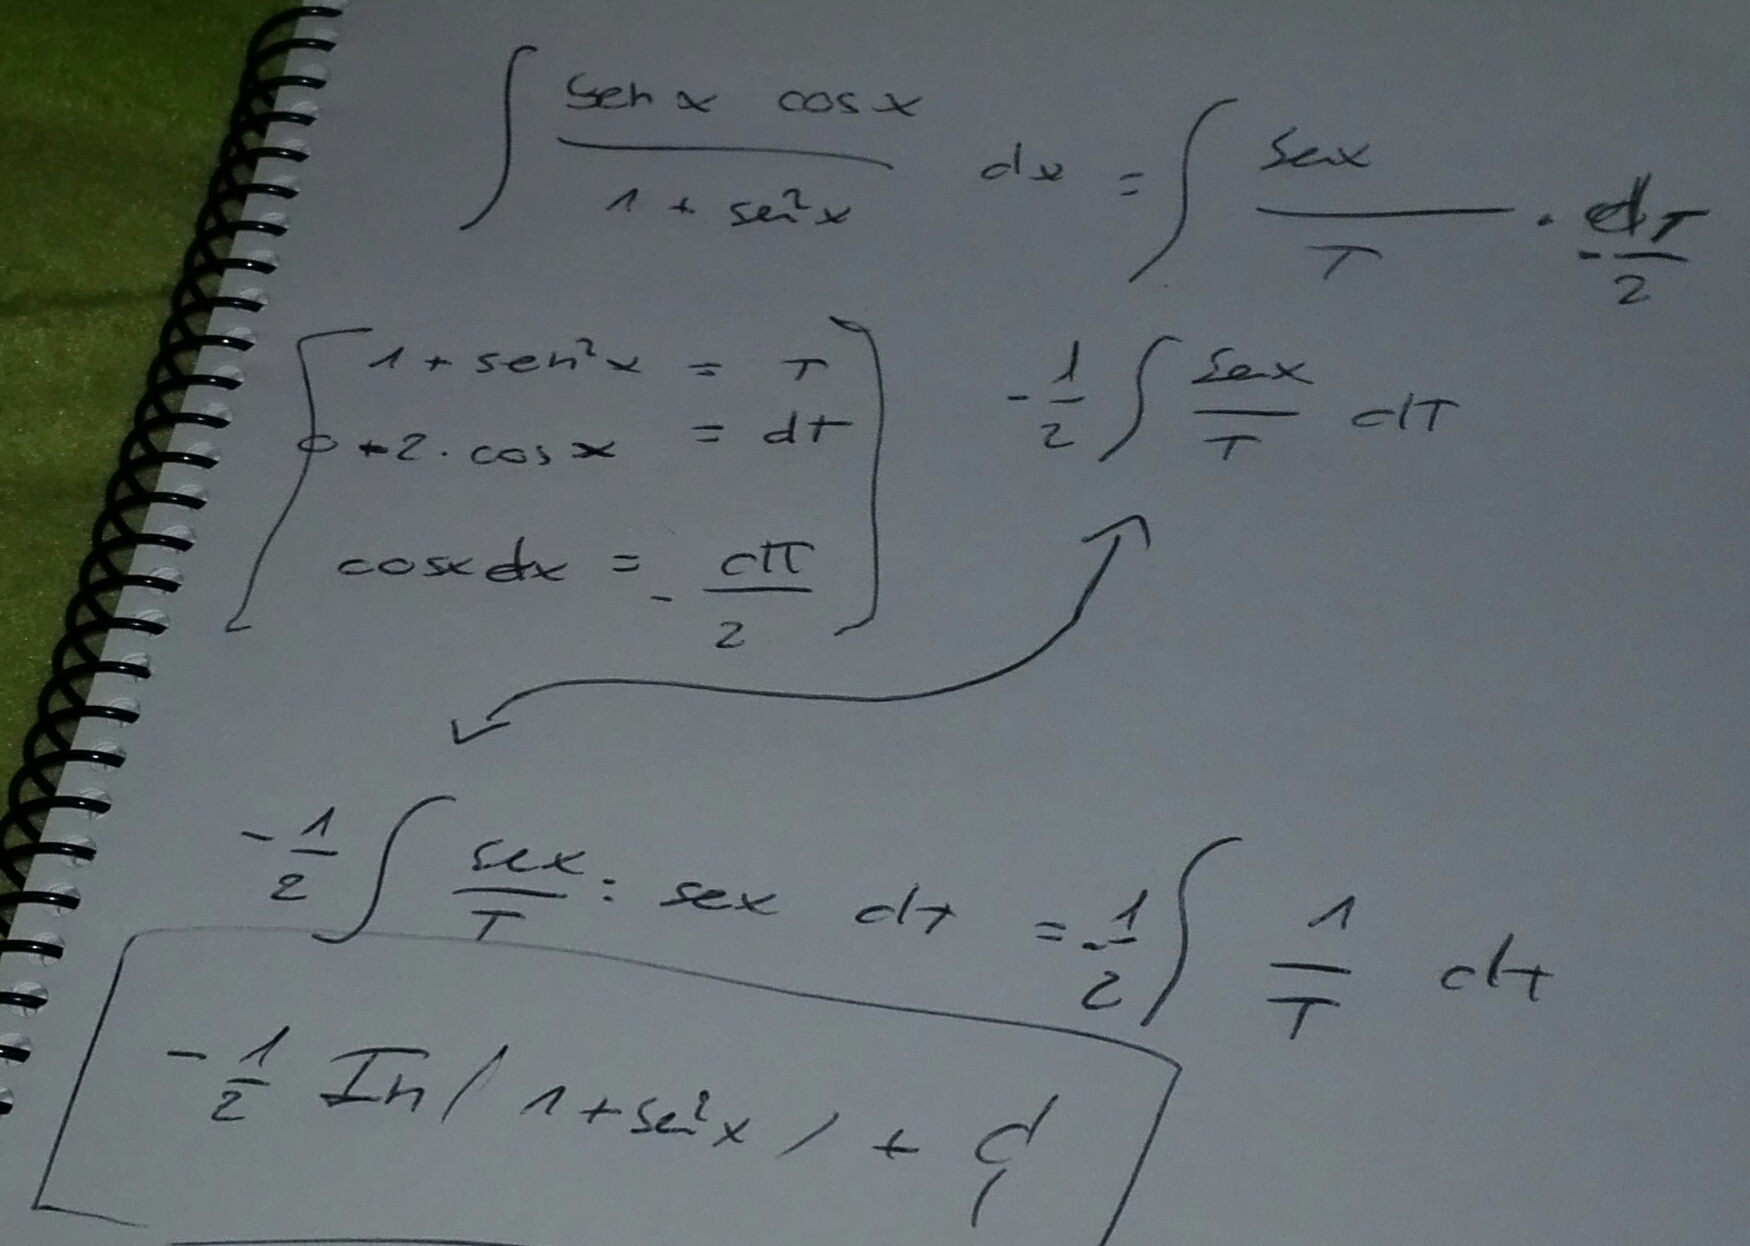 ∫ sen x cos x / 1 + sen²x dx = ∫ sex / T · dT / -2
1 + sen²x = T
0 + 2 · cos x = dt
cosx dx = - dT / 2
- 1/2 ∫ sex / T dT
- 1/2 ∫ sex / T : sex dt = - 1/2 ∫ 1 / T dt
- 1/2 In / 1 + se²x / + C